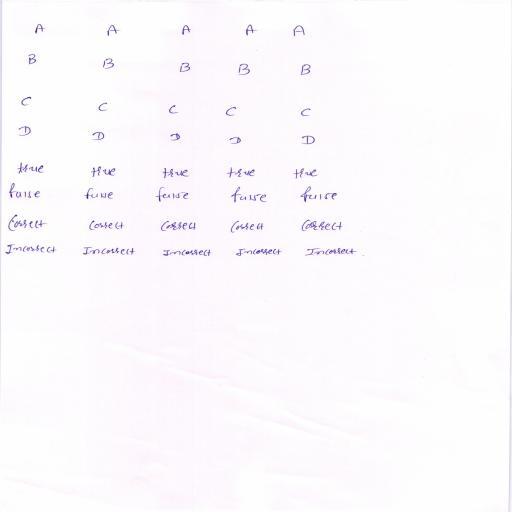 A A A A A
B B B B B
C C C C C
D D D D D
true true true true true
false false false false false
Correct Correct Correct Correct Correct
Incorrect Incorrect Incorrect Incorrect Incorrect